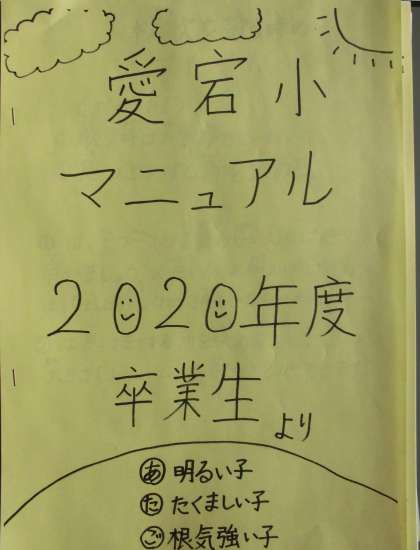 愛宕小
マニュアル
2020年度
卒業生より
あ 明るい子
た たくましい子
ご 根気強い子